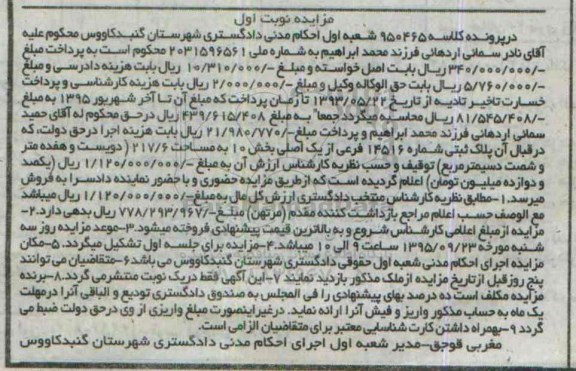 مزایده نوبت اول
درپرونده کلاسه ۹۵۰۴۶۵ شعبه اول احکام مدنی دادگستری شهرستان گنبدکاووس محکوم علیه
آقای نادر سمانی اردهانی فرزند محمد ابراهیم به شماره ملی ۲۰۳۱۵۹۶۵۶۱ محکوم است به پرداخت مبلغ
۳۴۰/۰۰۰/۰۰۰/- ریال بابت اصل خواسته و مبلغ -/۱۰/۳۱۰/۰۰۰ ریال بابت هزینه دادرسی و مبلغ
۵/۷۶۰/۰۰۰/- ریال بابت حق الوکاله وکیل و مبلغ -/۲/۰۰۰/۰۰۰ ریال بابت هزینه کارشناسی و پرداخت
خسارت تاخیر تادیه از تاریخ ۱۳۹۳/۰۵/۲۲ تا زمان پرداخت که مبلغ آن تا آخر شهریور ۱۳۹۵ به مبلغ
۸۱/۵۴۵/۴۰۸/- ریال محاسبه میگردد جمعا" به مبلغ ۴۳۹/۶۱۵/۴۰۸ ریال درحق محکوم له آقای حمید
سمانی اردهانی فرزند محمد ابراهیم و پرداخت مبلغ -/۲۱/۹۸۰/۷۷۰ ریال بابت هزینه اجرا درحق دولت، که
در قبال آن پلاک ثبتی شماره ۱۴۵۱۶ فرعی از یک اصلی بخش ۱۰ به مساحت ۲۱۷/۶ ( دویست و هفده متر
و شصت دسیمترمربع) توقیف و حسب نظریه کارشناس ارزش آن به مبلغ -/۱/۱۲۰/۰۰۰/۰۰۰ ریال (یکصد
و دوازده میلیون تومان) اعلام گردیده است که ازطریق مزایده حضوری و با حضور نماینده دادسرا به فروش
میرسد.۱-مطابق نظریه کارشناس منتخب دادگستری ارزش کل مال به مبلغ -/۱/۱۲۰/۰۰۰/۰۰۰ ریال میباشد
مع الوصف حسب اعلام مراجع بازداشت کننده مقدم (مرتهن) مبلغ -/۷۷۸/۲۹۳/۹۶۷ ریال بدهی دارد.۲-
مزایده ازمبلغ اعلامی کارشناس شروع و به بالاترین قیمت پیشنهادی فروخته میشود.۳-موعد مزایده روز سه
شنبه مورخه ۱۳۹۵/۰۹/۲۳ ساعت ۹ الی ۱۰ میباشد.۴-مزایده برای جلسه اول تشکیل میگردد.۵-مکان
مزایده اجرای احکام مدنی شعبه اول حقوقی دادگستری شهرستان گنبدکاووس می باشد ۶-متقاضیان می توانند
پنج روز قبل از تاریخ مزایده ازملک مذکور بازدید نمایند ۷-این آگهی فقط دریک نوبت منتشرمی گردد.۸-برنده
مزایده مکلف است ده درصد بهای پیشنهادی را فی المجلس به صندوق دادگستری تودیع و الباقی آنرا درمهلت
یک ماه به حساب مذکور واریز و فیش آنرا ارائه نماید. درغیراینصورت مبلغ واریزی از وی درحق دولت ضبط می
گردد ۹-بهمراه داشتن کارت شناسایی معتبر برای متقاضیان الزامی است.
مغربی قوجق-مدیر شعبه اول اجرای احکام مدنی دادگستری شهرستان گنبدکاووس